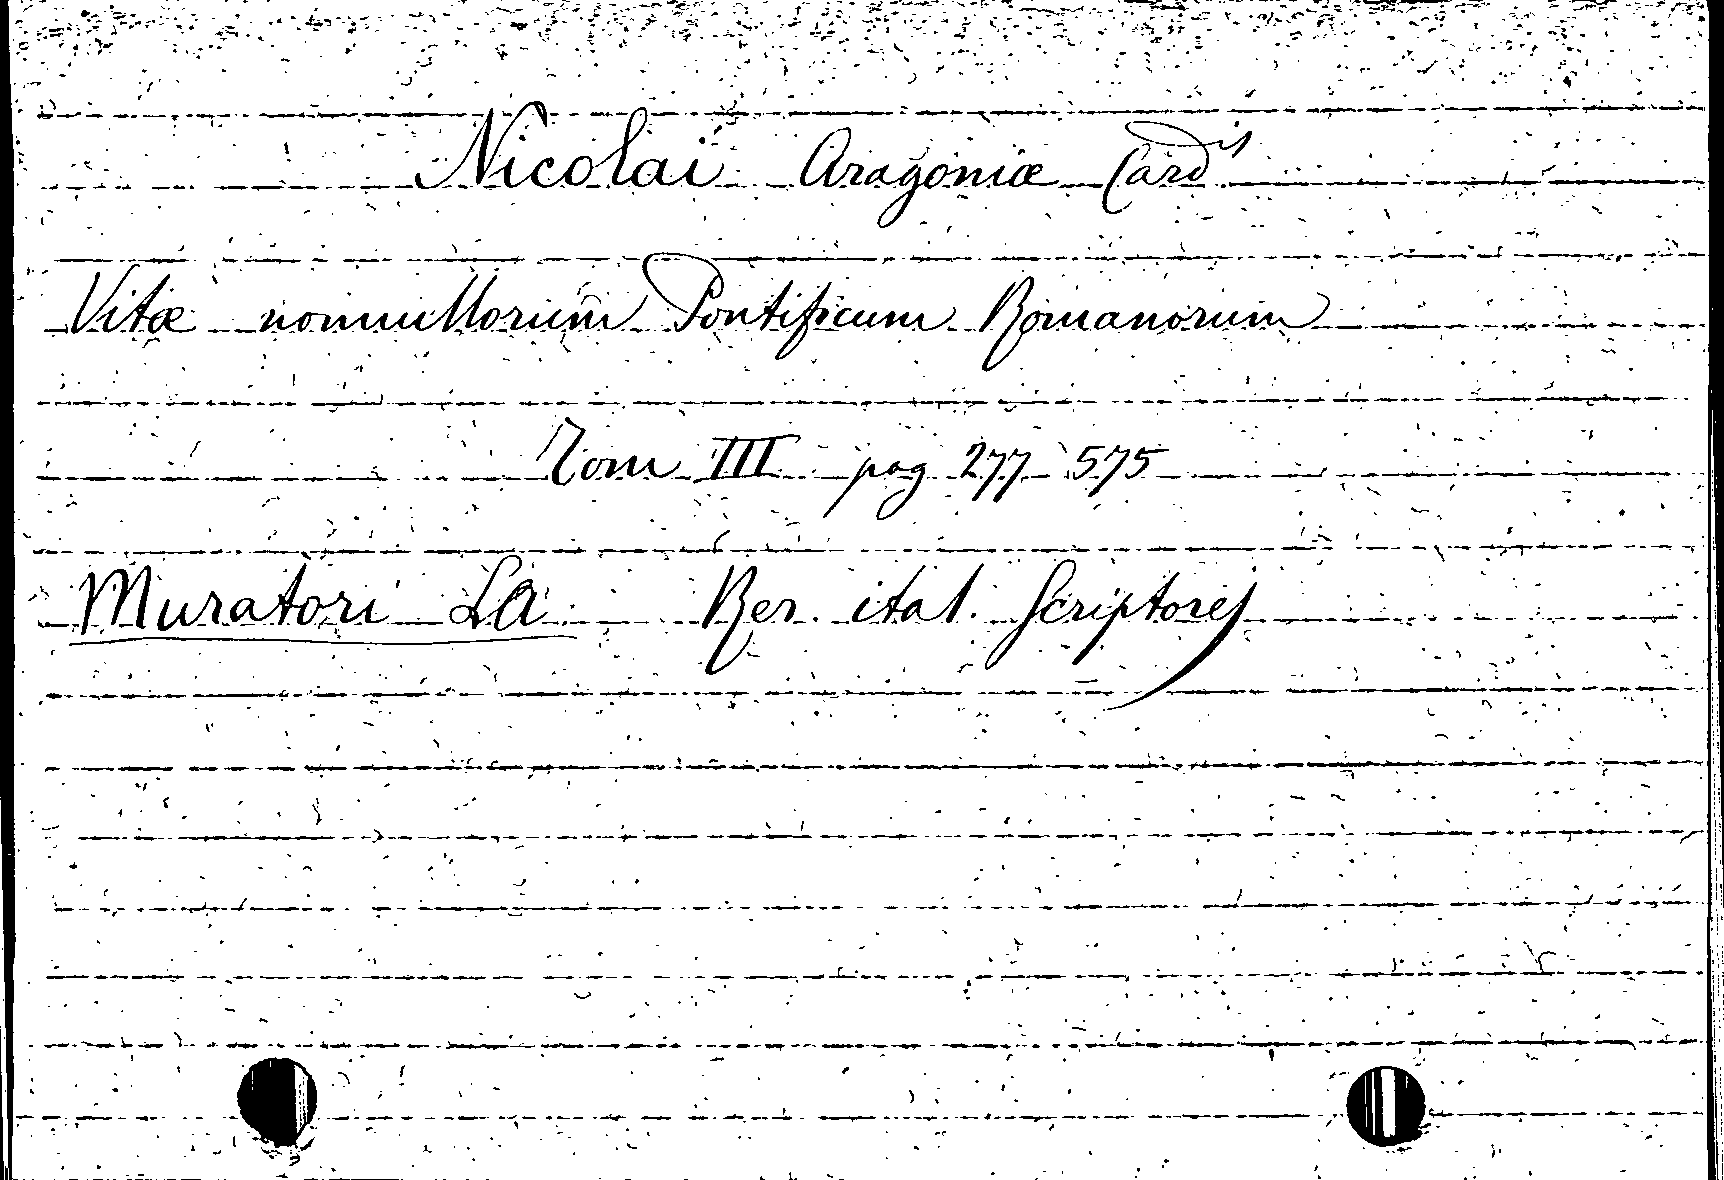 Nicolai Aragoniæ Card^is
Vitæ nonnullorum Pontificum Romanorum
Tom III pag 277 575
Muratori LA Rer. ital. Scriptores